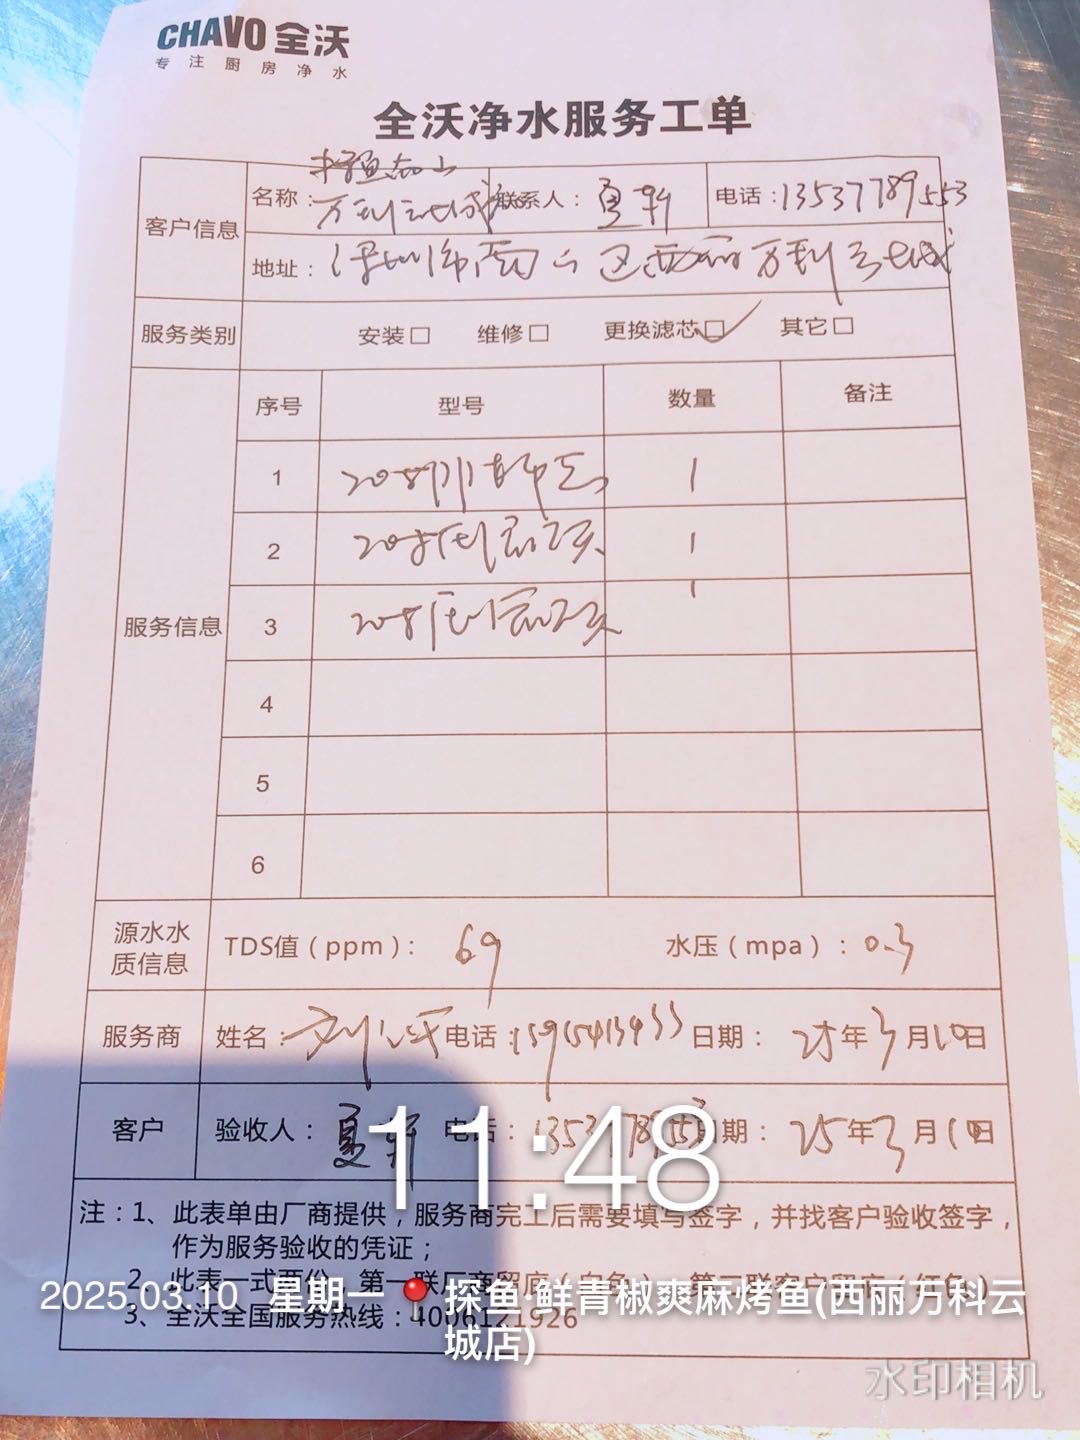 CHAVO 全沃
专注厨房净水
全沃净水服务工单
客户信息 名称： 联系人：夏新 电话：13537789553
地址：深圳市南山区西丽万科云城
服务类别 安装□ 维修□ 更换滤芯☑ 其它□
服务信息 序号 型号 数量 备注
1 1
2 1
3 1
4
5
6
源水水质信息 TDS值（ppm）： 69 水压（mpa）：0.3
服务商 姓名： 电话： 日期：25年3月10日
客户 验收人：夏新 电话： 日期：25年3月10日
注：1、此表单由厂商提供，服务商完工后需要填写签字，并找客户验收签字，
作为服务验收的凭证；
2、此表一式两份，第一联厂商留底（白色），第二联客户留底（红色）
3、全沃全国服务热线：4006121926
11:48
2025.03.10 星期一 探鱼·鲜青椒爽麻烤鱼(西丽万科云
城店)
水印相机